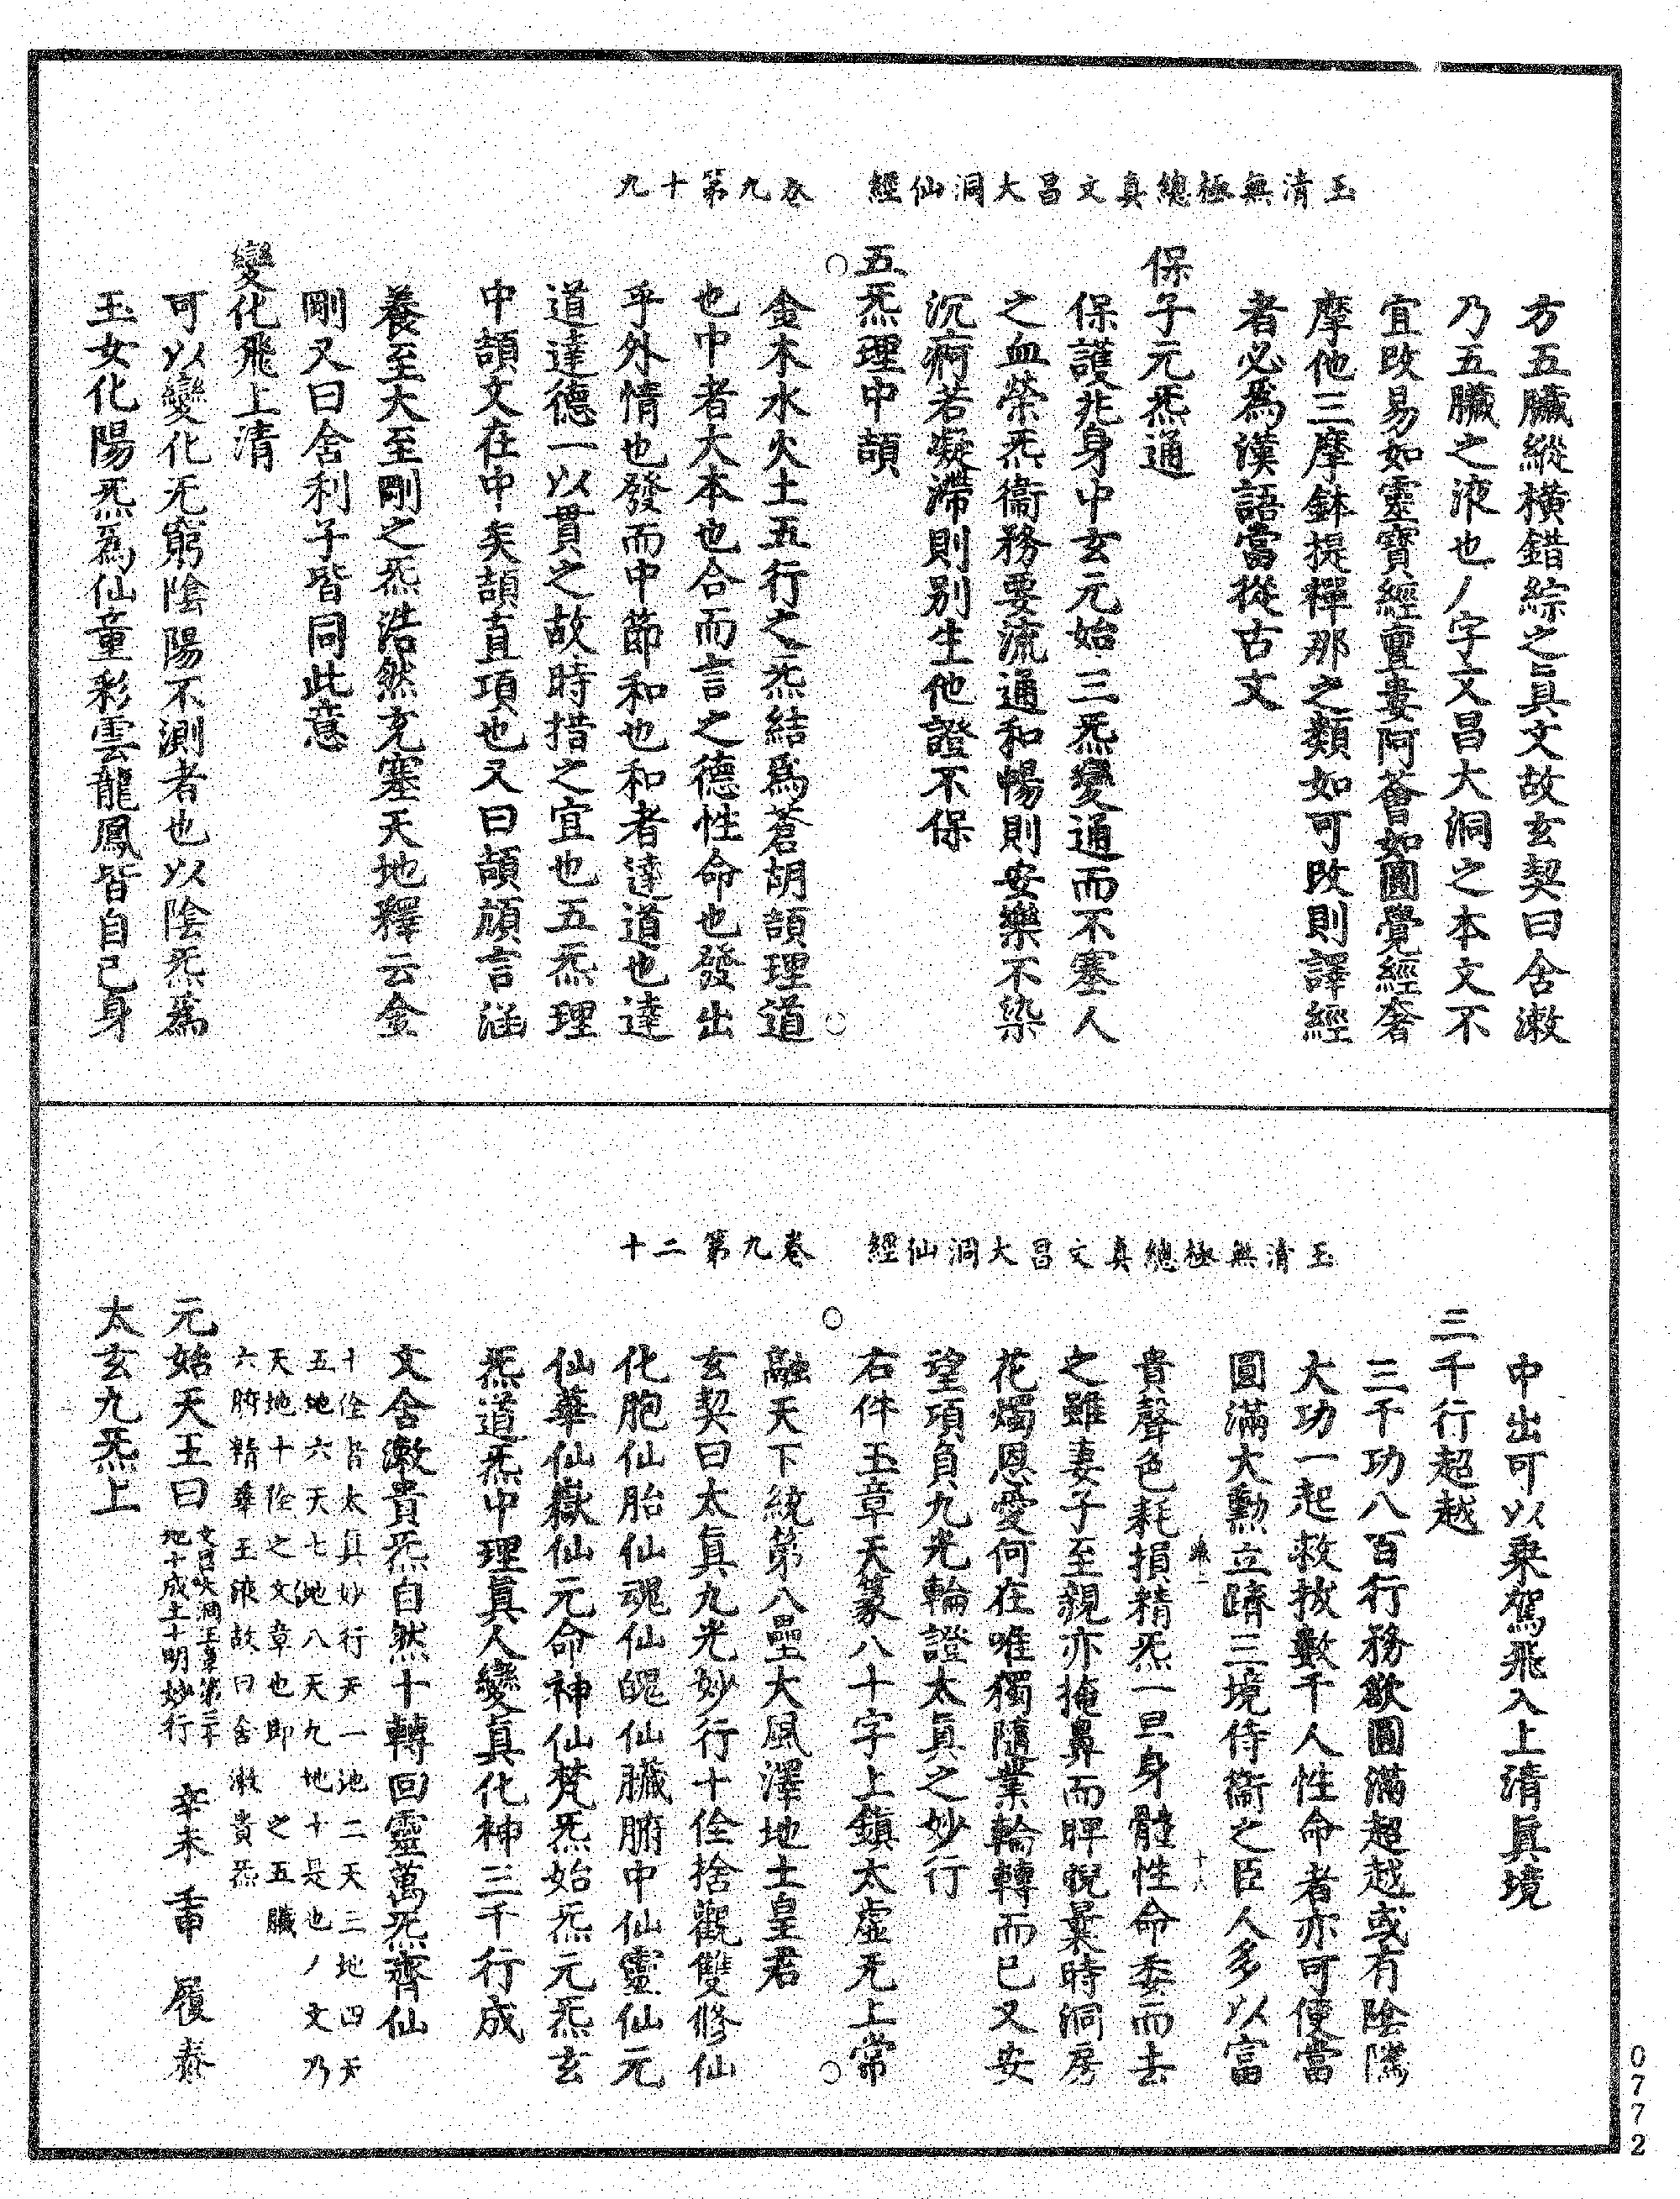 玉清無極總真文昌大洞仙經　卷九第十九
方五臟縱橫錯綜之真文故玄契曰舍漱
乃五臟之液也ノ字文昌大洞之本文不
宜改易如靈寶經亶婁阿薈如圓覺經奢
摩他三摩鉢提禪那之類如可改則譯經
者必爲漢語當從古文
保子元炁通
保護兆身中玄元始三炁變通而不塞人
之血榮炁衞務要流通和暢則安樂不染
沉痾若凝滯則別生他證不保
五炁理中頡
金木水火土五行之炁結爲蒼胡頡理道
也中者大本也合而言之德性命也發出
乎外情也發而中節和也和者達道也達
道達德一以貫之故時措之宜也五炁理
中頡文在中矣頡直項也又曰頡頏言涵
養至大至剛之炁浩然充塞天地釋云金
剛又曰舍利子皆同此意
變化飛上清
可以變化无窮陰陽不測者也以陰炁爲
玉女化陽炁爲仙童彩雲龍鳳皆自己身
玉清無極總真文昌大洞仙經　卷九第二十
中出可以乘駕飛入上清眞境
三千行超越
三千功八百行務欲圓滿超越或有陰隲
大功一起救拔數千人性命者亦可便當
圓滿大勳立躋三境侍衞之臣人多以富
貴聲色耗損精炁一旦身體性命委而去
之雖妻子至親亦掩鼻而睥睨曩時洞房
花燭恩愛何在唯獨隨業輪轉而已又安
望項負九光輪證太眞之妙行
右件玉章天篆八十字上鎮太虛无上常
融天下統第八壘大風澤地土皇君
玄契曰太眞九光妙行十佺捨觀雙修仙
化胞仙胎仙魂仙魄仙臟腑中仙靈仙元
仙華仙嶽仙元命神仙梵炁始炁元炁玄
炁道炁中理眞人變眞化神三千行成
文舍漱貴炁自然十轉回靈萬炁齊仙
十佺皆太真妙行天一地二天三地四天
五地六天七地八天九地十是也ノ文乃
天地十佺之文章也即　之五臟
六腑精華玉液故曰舍漱貴炁
元始天王曰文昌大洞玉章第三十地十成土十明妙行　辛未　𤱶申　履泰
太玄九炁上
0772